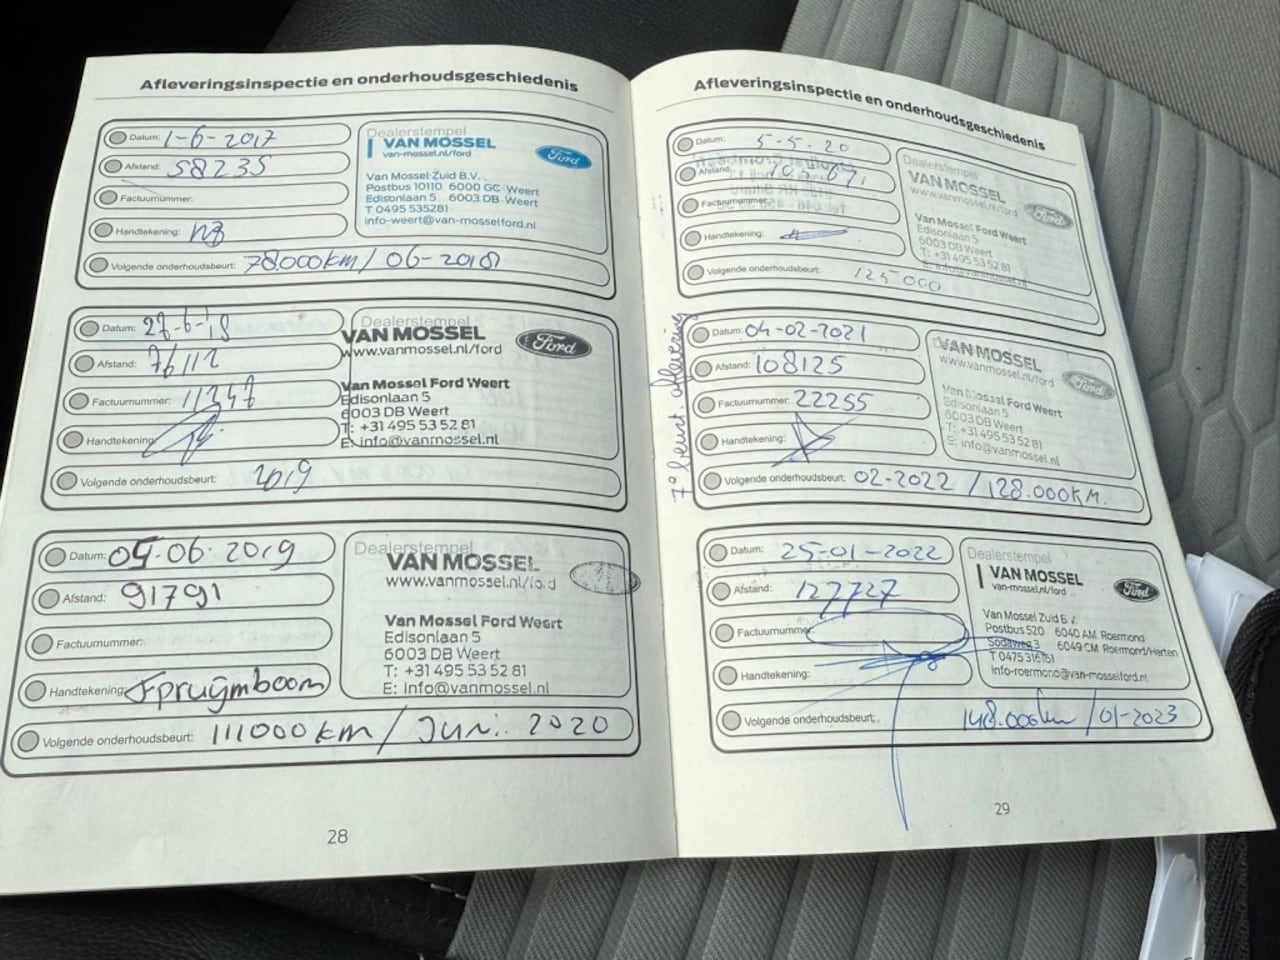 Afleveringsinspectie en onderhoudsgeschiedenis
Datum: 1-6-2017
Afstand: 58235
Factuurnummer:
Handtekening:
Volgende onderhoudsbeurt: 78.000km / 06-2018
Dealerstempel
VAN MOSSEL
van-mossel.nl/ford
Ford
Van Mossel Zuid B.V.
Postbus 10110 6000 GC Weert
Edisonlaan 5 6003 DB Weert
T 0495 535281
info-weert@van-mosselford.nl
Datum: 27-6-'18
Afstand: 76112
Factuurnummer: 11347
Handtekening:
Volgende onderhoudsbeurt: 2019
Dealerstempel
VAN MOSSEL
www.vanmossel.nl/ford
Ford
Van Mossel Ford Weert
Edisonlaan 5
6003 DB Weert
T: +31 495 53 52 81
E: info@vanmossel.nl
Datum: 04-06-2019
Afstand: 91791
Factuurnummer:
Handtekening:
Volgende onderhoudsbeurt: 111000 km / Juni. 2020
Dealerstempel
VAN MOSSEL
www.vanmossel.nl/ford
Van Mossel Ford Weert
Edisonlaan 5
6003 DB Weert
T: +31 495 53 52 81
E: info@vanmossel.nl
28
Afleveringsinspectie en onderhoudsgeschiedenis
Datum: 5-5-20
Afstand:
Factuurnummer:
Handtekening:
Volgende onderhoudsbeurt: 125000
Dealerstempel
VAN MOSSEL
www.vanmossel.nl/ford
Ford
Van Mossel Ford Weert
Edisonlaan 5
6003 DB Weert
T: +31 495 53 52 81
E: info@vanmossel.nl
7e beurt. aflevering
Datum: 04-02-2021
Afstand: 108125
Factuurnummer: 22255
Handtekening:
Volgende onderhoudsbeurt: 02-2022 / 128.000KM.
VAN MOSSEL
www.vanmossel.nl/ford
Ford
Van Mossel Ford Weert
Edisonlaan 5
6003 DB Weert
T: +31 495 53 52 81
E: info@vanmossel.nl
Datum: 25-01-2022
Afstand: 127727
Factuurnummer:
Handtekening:
Volgende onderhoudsbeurt: 148.000km / 01-2023
Dealerstempel
VAN MOSSEL
van-mossel.nl/ford
Ford
Van Mossel Zuid B.V.
Postbus 520 6040 AM Roermond
Sodaweg 3 6049 CM Roermond/Herten
T 0475 316161
info-roermond@van-mosselford.nl
29